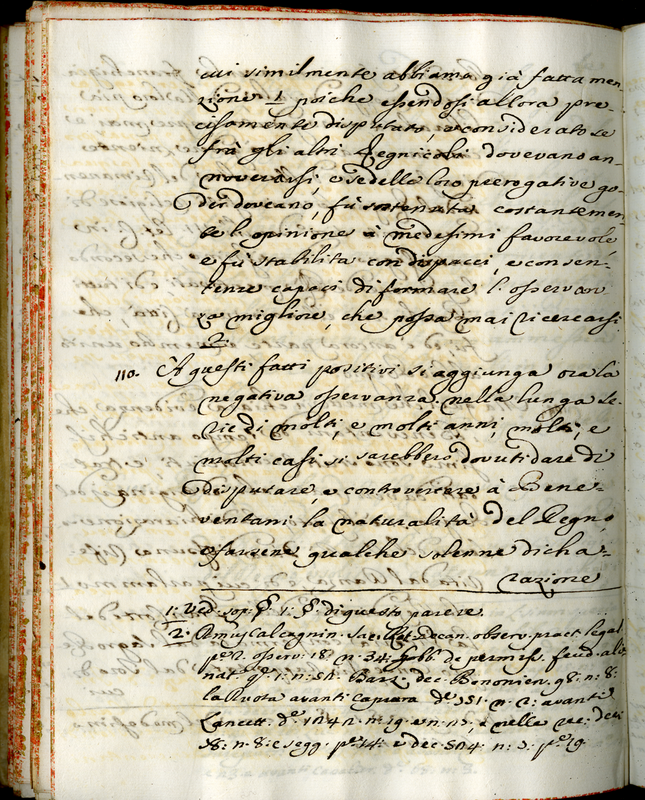 cui similmente abbiamo già fatta men-
zione 1 poiche essendosi allora pre-
cisamente disputato, e considerato, se
frà gli altri Regnicoli dovevano an-
noverarsi, e se delle loro prerogative go-
der doveano, fù sostenuta costantemen-
te l'opinione a medesimi favorevole
e fù stabilita con dispacci, e con sen-
tenze capaci di formare l'osservan-
za migliore, che possa mai ricercarsi
2.
110. A questi fatti positivi si aggiunga ora la
negativa osservanza nella lunga se-
rie di molti, e molti anni, molti, e
molti casi si sarebbero dovuti dare di
disputare, e controvertere à Bene-
ventani la naturalità del Regno,
o farsene qualche solenne dicha-
razione
1: Ved. sop. §. 1: §. di questo parere
2. observ. pract. legal
p.e 2. osserv: 18: n. 34: de permiss. feud. alie
nat. 1: n: 51: Barz. dec. Bononien. 98: n: 8:
la Ruota avanti Caprara d.e 351. n. 2: avanti
Lancett: d.e e nelle rec: dec:
n. 8: e segg. p.e 14: e dec 504: n: 5: p.e 19.